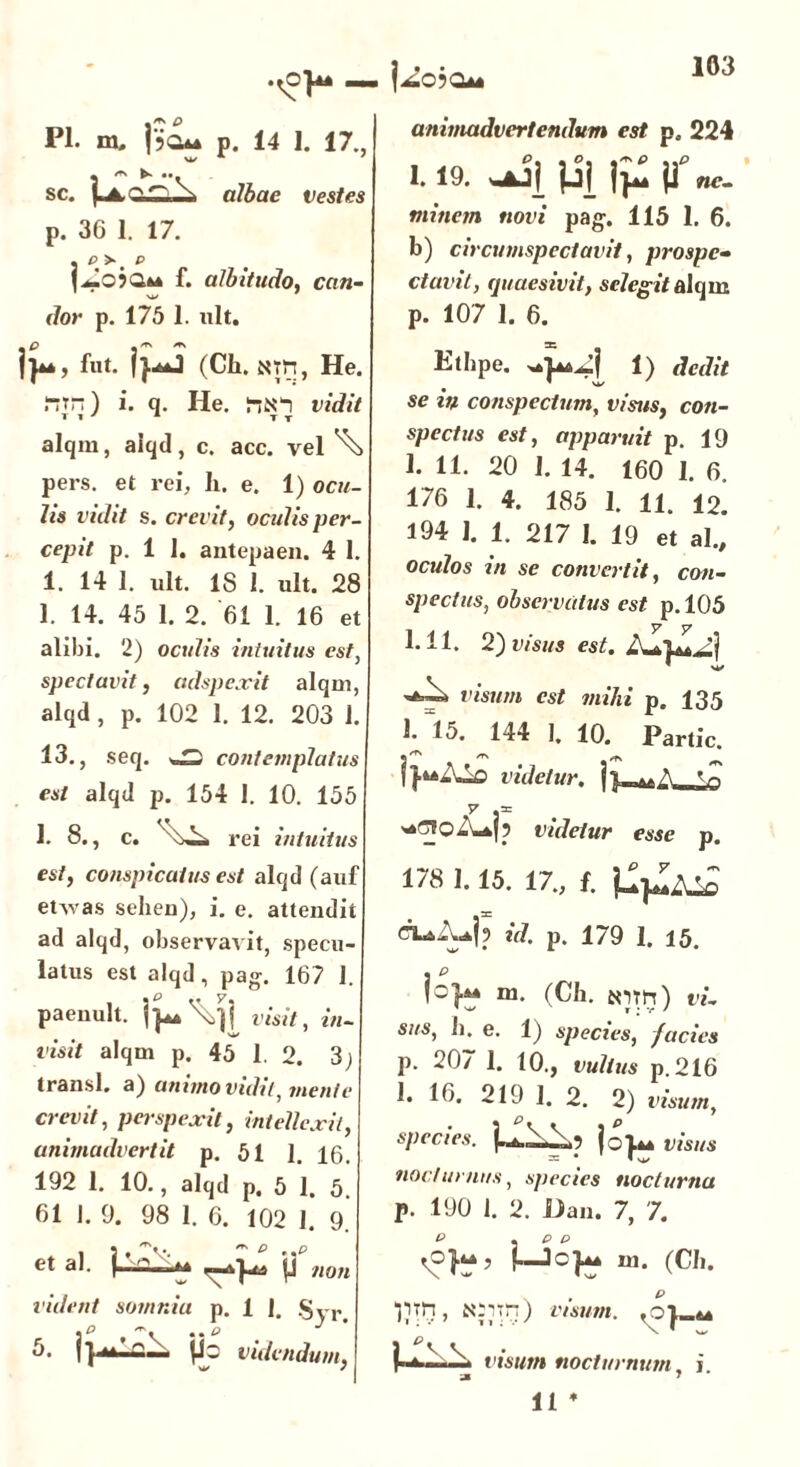 .ܚܙܘܢ — ܚܘܪܘܬܐ 103
Pl. m. ܚܘܪܐ p. 14 l. 17.,
sc. ܠܒܘܫܐ albae vestes
p. 36 l. 17.
ܚܘܪܘܬܐ f. albitudo, can-
dor p. 175 l. ult.
ܚܙܐ, fut. ܢܚܙܐ (Ch. חֲזָא, He.
חָזָה) i. q. He. רָאָה vidit
alqm, alqd, c. acc. vel ܠ
pers. et rei, h. e. 1) ocu-
lis vidit s. crevit, oculis per-
cepit p. 1 l. antepaen. 4 l.
1. 14 l. ult. 18 l. ult. 28
l. 14. 45 l. 2. 61 l. 16 et
alibi. 2) oculis intuitus est,
spectavit, adspexit alqm,
alqd, p. 102 l. 12. 203 l.
13., seq. ܒ contemplatus
est alqd p. 154 l. 10. 155
l. 8., c. ܥܠ rei intuitus
est, conspicatus est alqd (auf
etwas sehen), i. e. attendit
ad alqd, observavit, specu-
latus est alqd, pag. 167 l.
paenult. ܐܙܠ ܚܙܐ visit, in-
visit alqm p. 45 l. 2. 3)
transl. a) animo vidit, mente
crevit, perspexit, intellexit,
animadvertit p. 51 l. 16.
192 l. 10., alqd p. 5 l. 5.
61 l. 9. 98 l. 6. 102 l. 9.
et al. ܠܐ ܚܙܝܢ ܚܠܡܐ non
vident somnia p. 1 l. Syr.
5. ܘܠܐ ܠܡܚܙܐ videndum,
animadvertendum est p. 224
l. 19. ܠܐ ܚܙܐ ܐܢܐ ܐܢܫ ne-
minem novi pag. 115 l. 6.
b) circumspectavit, prospe-
ctavit, quaesivit, selegit alqm
p. 107 l. 6.
Ethpe. ܐܬܚܙܝ 1) dedit
se in conspectum, visus, con-
spectus est, apparuit p. 19
l. 11. 20 l. 14. 160 l. 6.
176 l. 4. 185 l. 11. 12.
194 l. 1. 217 l. 19 et al.,
oculos in se convertit, con-
spectus, observatus est p. 105
l. 11. 2) visus est. ܐܬܚܙܝܬ
ܠܝ visum est mihi p. 135
l. 15. 144 l. 10. Partic.
ܡܬܚܙܐ videtur. ܡܬܚܙܐ
ܕܐܝܬܘܗܝ videtur esse p.
178 l. 15. 17., f. ܡܬܚܙܝܐ
ܕܐܝܬܝܗ id. p. 179 l. 15.
ܚܙܘܐ m. (Ch. חֶזְוָא) vi-
sus, h. e. 1) species, facies
p. 207 l. 10., vultus p. 216
l. 16. 219 l. 2. 2) visum,
species. ܚܙܘܐ ܕܠܠܝܐ visus
nocturnus, species nocturna
p. 190 l. 2. Dan. 7, 7.
ܚܙܘܢ, ܚܙܘܢܐ m. (Ch.
חֶזְוָן, חֶזְוָנָא) visum. ܚܙܘܢ
ܠܠܝܐ visum nocturnum, i.
11 *